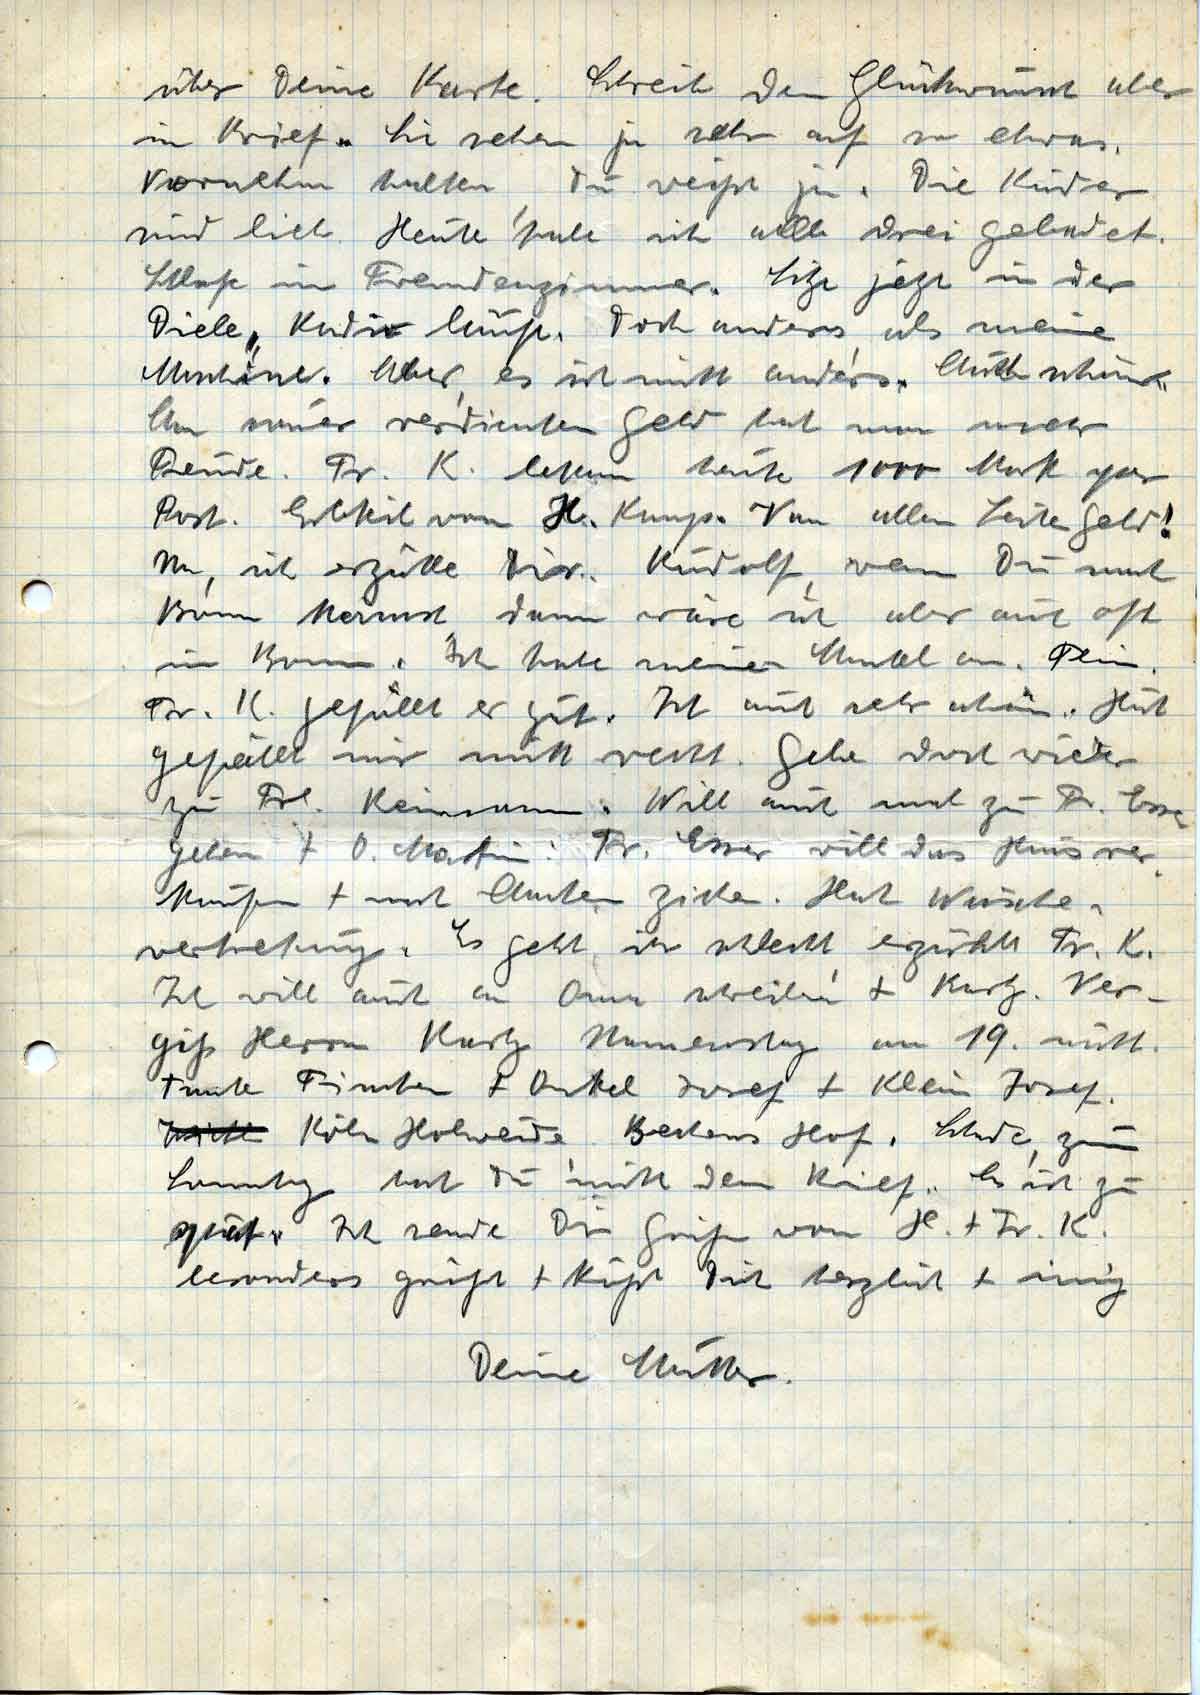 über Deine Karte. Schreib den Glückwunsch aber
im Brief. Sie sehen ja sehr auf so etwas.
Vornehm halten Du weißt ja. Die Kinder
sind lieb. Heute habe ich alle drei gebadet.
Schlafe im Fremdenzimmer. Sitze jetzt in der
Diele, Radio läuft. Doch anders als meine
Maschine. Aber, es ist nicht anders. Auch schön.
Am sauer verdienten Geld hat man mehr
Freude. Fr. K. bekam heute 1000 Mark per
Post. Erbteil von H. Kamp. Von allen Seiten Geld!
Na, ich erzähle Dir. Rudolf, wenn Du nach
Bonn kommst dann wäre ich aber auch oft
in Bonn. Ich habe meinen Mantel an. Fein.
Fr. K. gefällt er gut. Ist auch sehr schön. Hut
gefällt mir nicht recht. Gehe doch wieder
zu Frl. Will auch mal zu Fr. Esser
gehen + O. Martin. Fr. Esser will das Haus ver-
kaufen + nach Aachen ziehen. Hat Wäsche-
vertretung. Es geht ihr schlecht erzählt Fr. K.
Ich will auch an Oma schreiben + Kurtz. Ver-
giß Herrn Kurtz Namenstag am 19. nicht.
Tante Finchen + Onkel Josef + Klein Josef.
Köln Holweide Hof. Schade, zum
Sonntag hast Du nicht den Brief. Es ist zu
spät. Ich sende Dir Grüße von H. + Fr. K.
besonders grüßt + küßt Dich herzlich + innig
Deine Mutter.